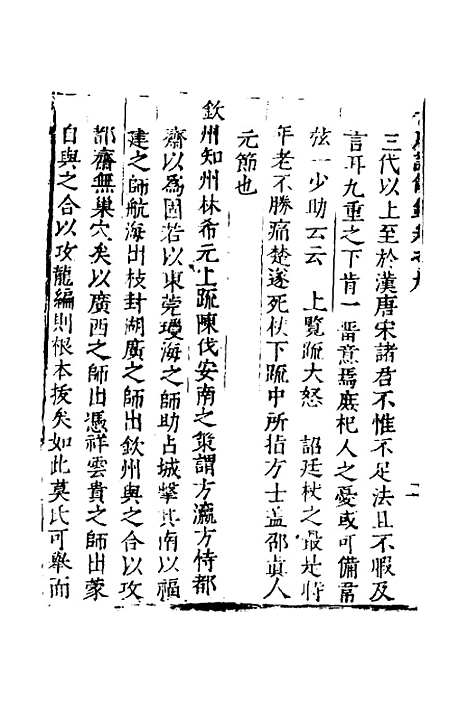 三代以上至於漢唐宋諸君不惟不足法且不暇及
言耳九重之下肯一畱意焉庶杞人之憂或可備韋
弦一少助云云　上覽疏大怒　詔廷杖之最是時
年老不勝痛楚遂死杖下疏中所指方士盖邵眞人
元節也
欽州知州林希元上疏陳伐安南之策謂方瀛方恃都
齋以爲固若以東莞瓊海之師助占城擊其南以福
建之師航海出枝封湖廣之師出欽州與之合以攻
都齋無巢穴矣以廣西之師出憑祥雲貴之師出蒙
自與之合以攻龍編則根本拔矣如此莫氏可舉而